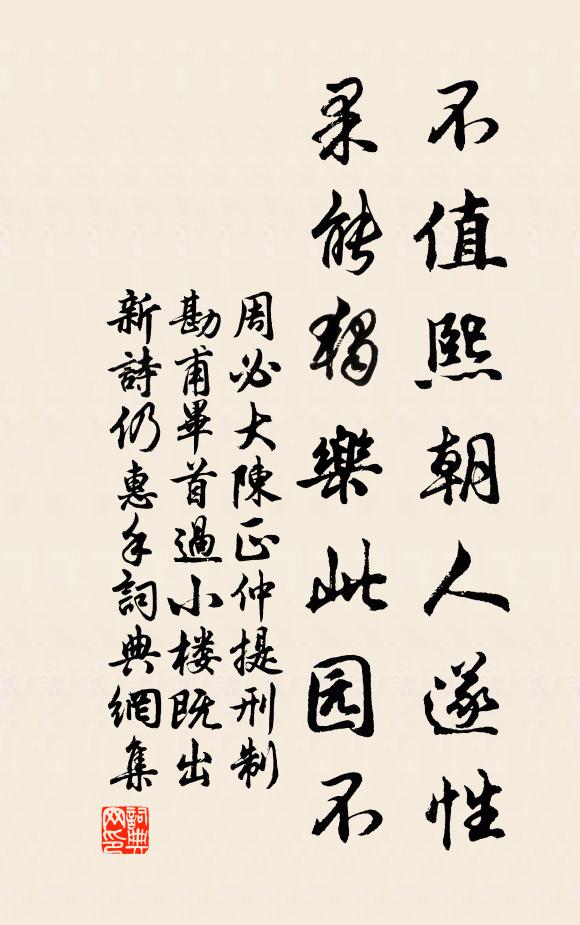 不值熙朝人遂性
果能独樂此园不
周必大陳正仲提刑制
勘甫畢首過小楼既出
新詩仍惠手詞典網集
詞典网印